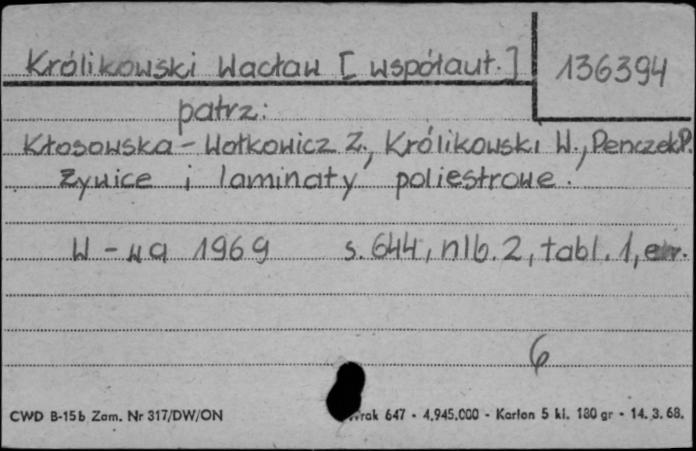 Królikowski Wacław [współaut.] 136394
patrz:
Kłosowska-Wołkowicz Z., Królikowski W., Penczek P.
Żywice i laminaty poliestrowe.
W-wa 1969 s. 644, nlb. 2, tabl. 1,
6
CWD B-15b Zam. Nr 317/DW/ON rak 647 - 4.945.000 - Karton 5 kl. 180 gr - 14. 3. 68.